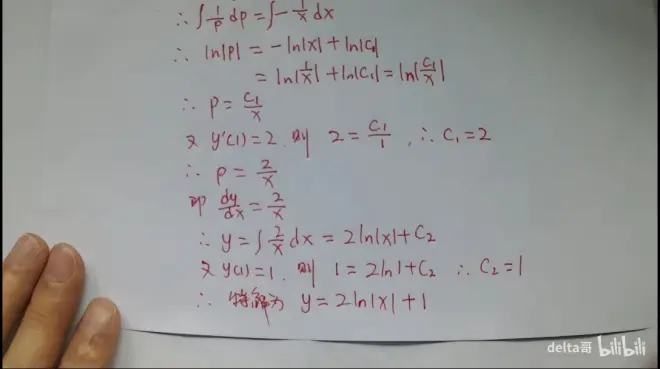 ∴ ∫ 1/p dp = ∫ - 1/x dx
∴ ln|p| = -ln|x| + ln|C₁|
= ln|1/x| + ln|C₁| = ln|C₁/x|
∴ p = C₁/x
又 y'(1) = 2, 则 2 = C₁/1, ∴ C₁ = 2
∴ p = 2/x
即 dy/dx = 2/x
∴ y = ∫ 2/x dx = 2ln|x| + C₂
又 y(1) = 1, 则 1 = 2ln1 + C₂ ∴ C₂ = 1
∴ 特解为 y = 2ln|x| + 1
delta哥 bilibili